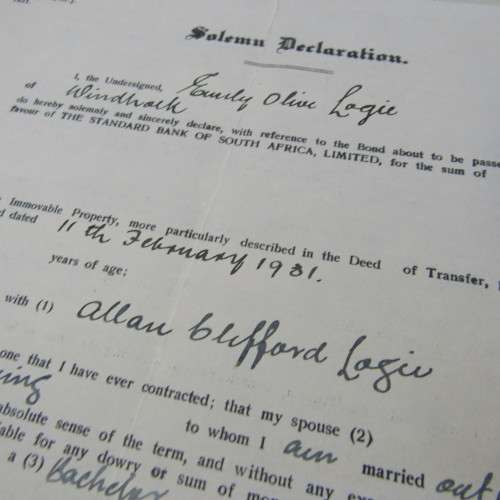 Solemn Declaration.
I, the Undersigned, Emily Olive Logie
of Windhoek
do hereby solemnly and sincerely declare, with reference to the Bond about to be passe
favour of THE STANDARD BANK OF SOUTH AFRICA, LIMITED, for the sum of
Immovable Property, more particularly described in the Deed of Transfer,
d dated 11th February 1931.
years of age;
with (1) Allan Clifford Logie
one that I have ever contracted; that my spouse (2)
ing to whom I am married out
absolute sense of the term, and without any
able for any dowry or sum of
a (3) Bachelor